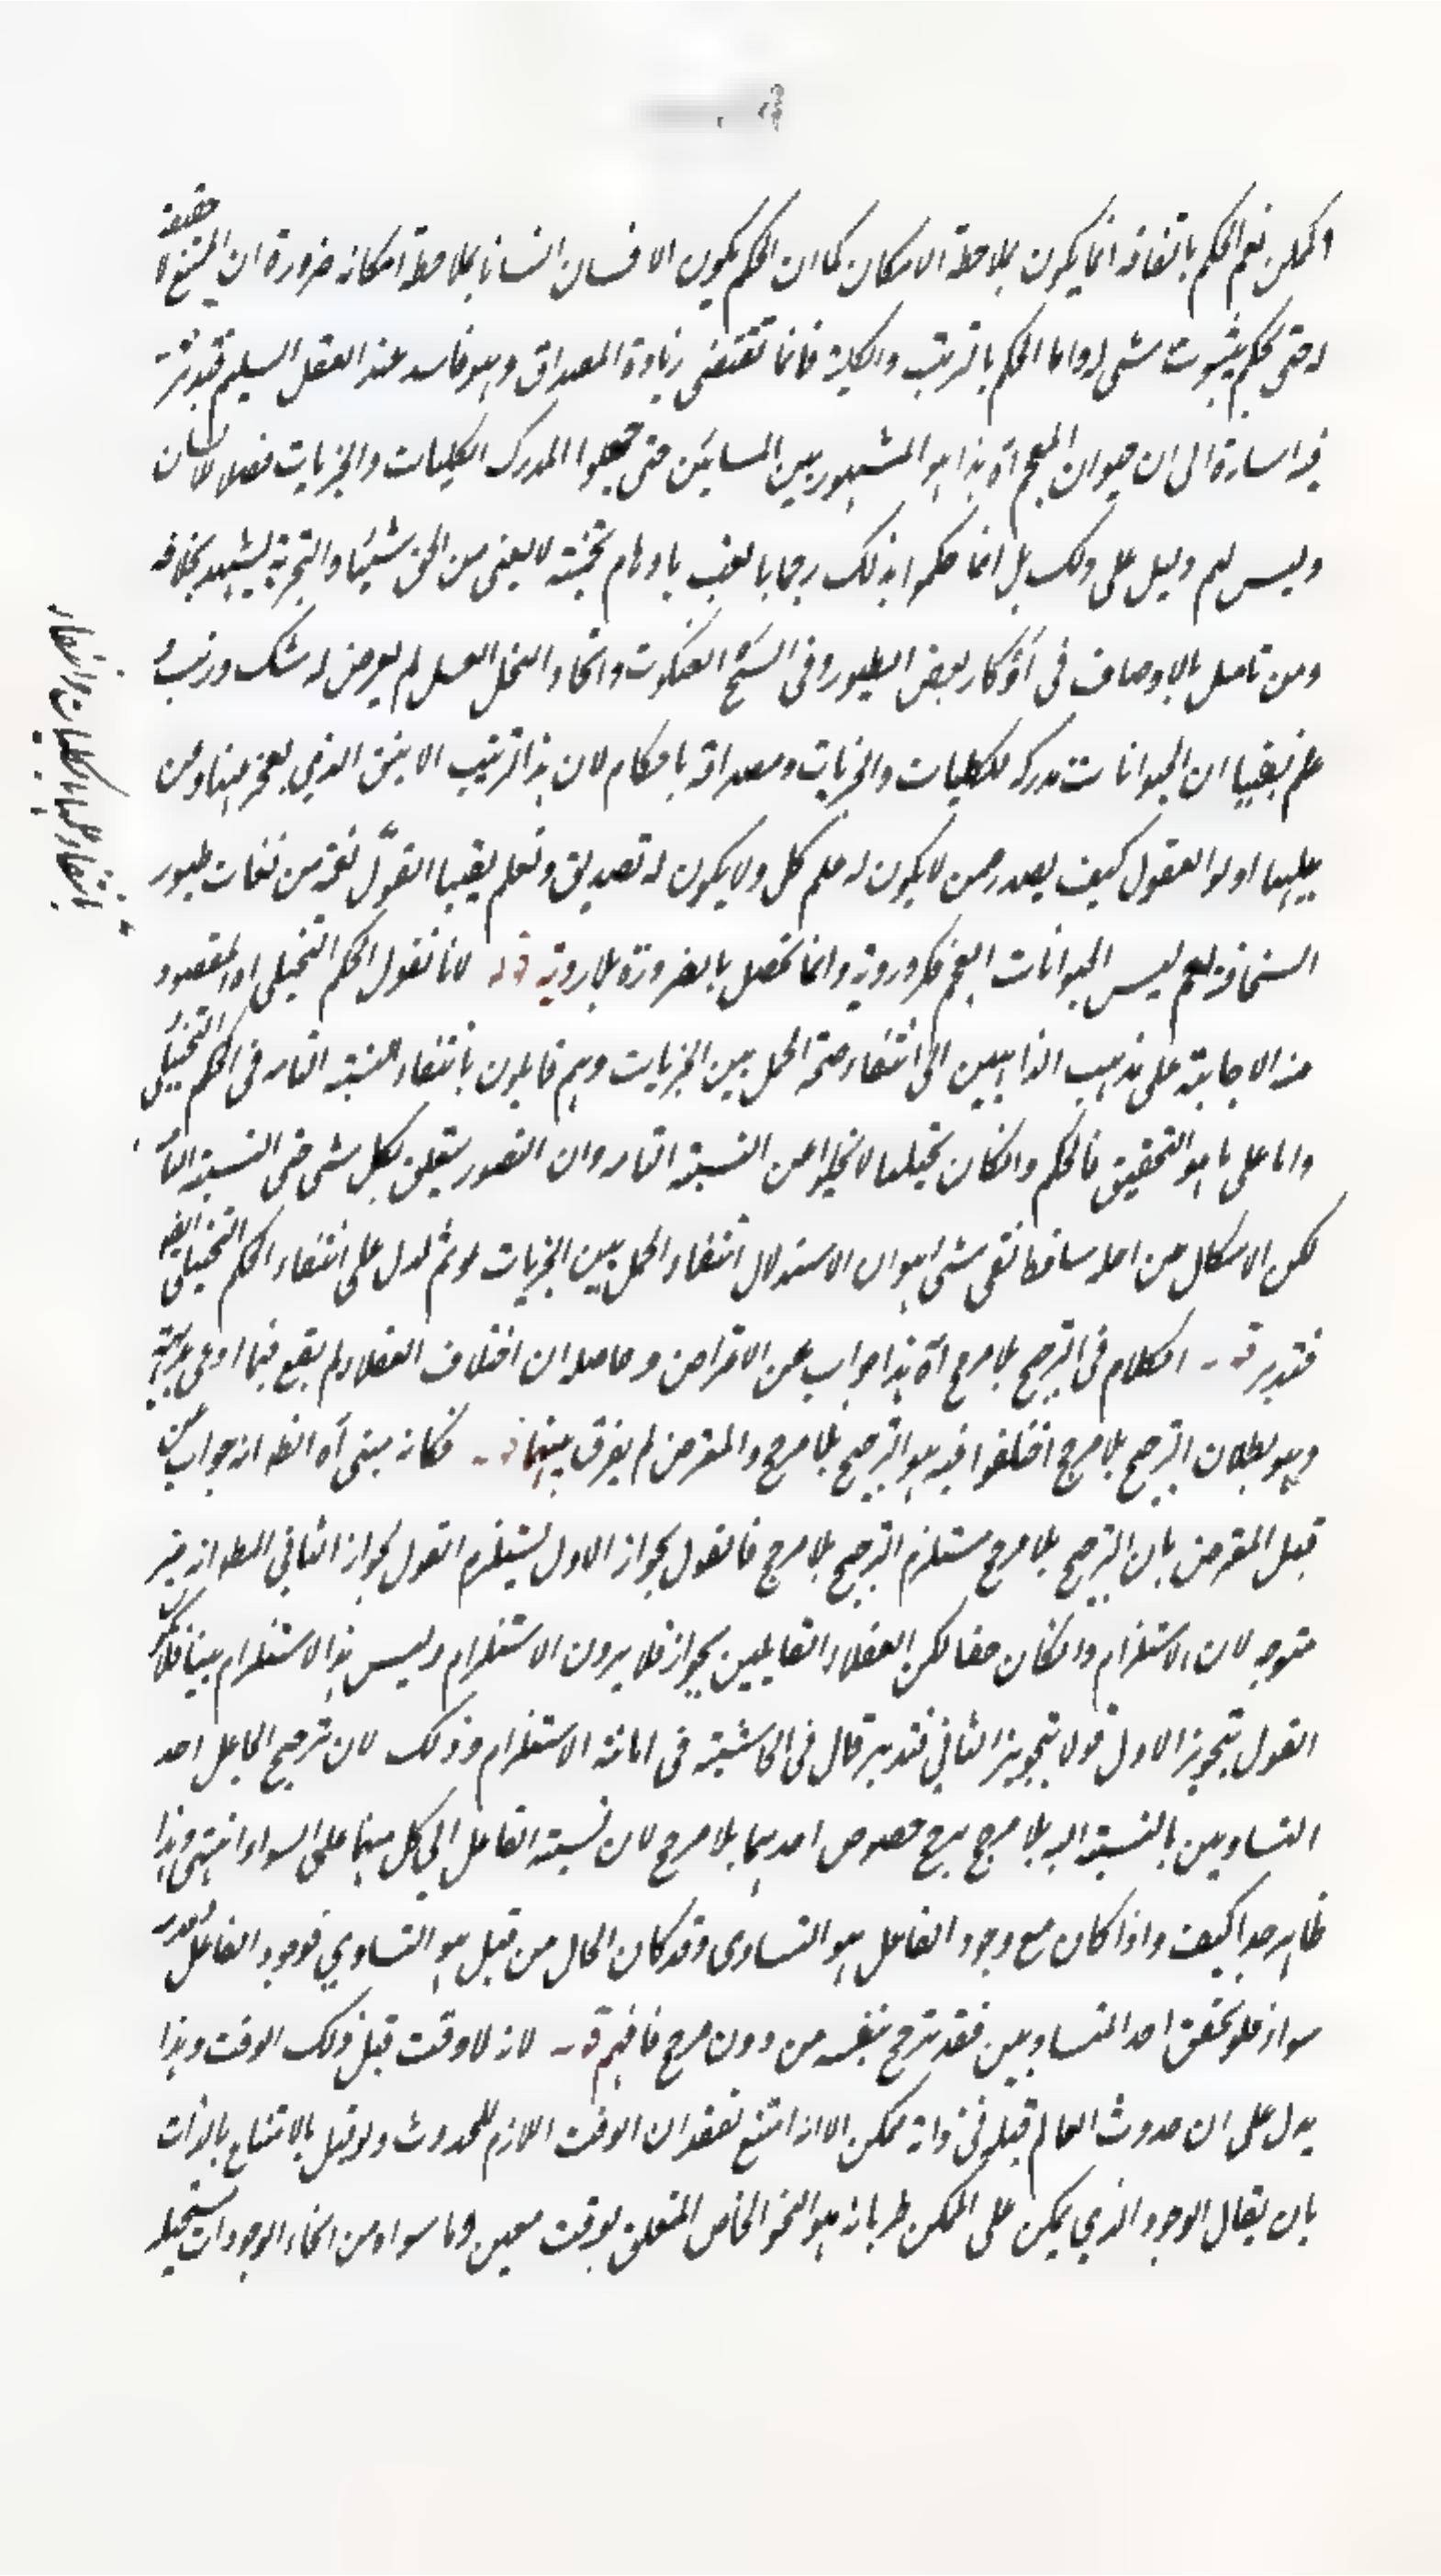 الممكن نعم الحكم باتفاقه انما يكون بملاحظة الامكان كما ان الحكم بكون الانسان انسانا بملاحظة امكانه ضرورة ان الممتنع لا حقيقة
له حتى يحكم بثبوت شىء له واما الحكم بالترتيب والكلية فانما تقتضى زيادة المصداق وهو فاسد عند العقل السليم فتدبر
فيه اشارة الى ان حيوان العجم آه هذا هو المشهور بين المشائين حتى جعلوا المدرك الكليات والجزيات فصلا للانسان
وليس لهم دليل على ذلك بل انما حكموا بذلك رجما بالغيب باوهام لا يغنى من الحق شيئا والتجربة يشهد بخلافه
ومن تامل بالاوصاف فى اوكار بعض الطيور وفى نسج العنكوت واتخاذ النحل العسل لم يعرض له شك وريب
علم يقينا ان الحيوانات مدركة للكليات والجزيات ومصداقة باحكام لان هذا الترتيب الانيق الذي يعجز عنها ومن
يليها اولو العقول كيف يصدر ممن لا يكون له علم كلى ولا يكون له تصديق ونعلم يقينا القول نغمة من نغمات طيور
نعم ليس الحيوانات العجم فكر وروية وانما تحصل بالضرورة بلا روية قوله لانا نقول الحكم التخيلى اه المقصود
منه الاجابة على مذهب الذاهبين الى انتفاء صحة الحمل بين الجزيات وهم قايلون بانتفاء النسبة التامه فى الحكم التخيلى
واما على ما هو التحقيق فالحكم وانكان تخيليا لا يخلوا من النسبة التامه وان التصور يتعلق بكل شى حتى النسبة التامه
لكن الاشكال من اصله ساقط بقى شىء هو ان الاستدلال انتفاء الحمل بين الجزيات لو تم لدل على انتفاء الحكم التخيلى ايضا
فتدبر قوله الكلام فى الترجيح بلا مرجح آه هذا جواب عن الاعتراض وحاصله ان اختلاف العقلاء لم يقع فيما ادعى بداهته
وهو بطلان الترجح بلا مرجح اختلفوا فيه هو الترجيح بلا مرجح والمعترض لم يفرق بينهما قوله فكانه مبنى آه الظ انه جواب عن
قبل المعترض بان الترجيح بلا مرجح مستلزم الترجح بلا مرجح فالقول بجواز الاول يستلزم القول بجواز الثانى الظ انه غير
متوجه لان الاستلزام وانكان حقا لكن العقلاء القايلين بجوازه لا يرون الاستلزام وليس هذا الاستلزام بينا فلا يكون
القول بتجويز الاول قولا بتجويز الثاني فتدبر قال فى الحاشية فى اثبات الاستلزام وذلك لان ترجيح الجاعل احد
المتساويين بالنسبة اليه بلا مرجح يرجح خصوص احدهما بلا مرجح لان نسبة الفاعل الى كل منهما على السواء انتهى وهذا
ظاهر جدا كيف واذا كان مع وجود الفاعل هو التساوى وقد كان الحال من قبل هو التساوي فوجود الفاعل
سواء فلو تحقق احد المتساويين فقد ترجح بنفسه من دون مرجح فافهم قوله لانه لا وقت قبل ذلك الوقت وهذا
يدل على ان حدوث العالم قبله فى ذاته ممكن الا انه امتنع لفقدان الوقت اللازم للحدوث ولو قيل بالامتناع بالذات
بان يقال الوجود الذي يمكن على الممكن طريانه هو النحو الخاص المتعلق بوقت معين وما سواه من انحاء الوجودات مستحيلة